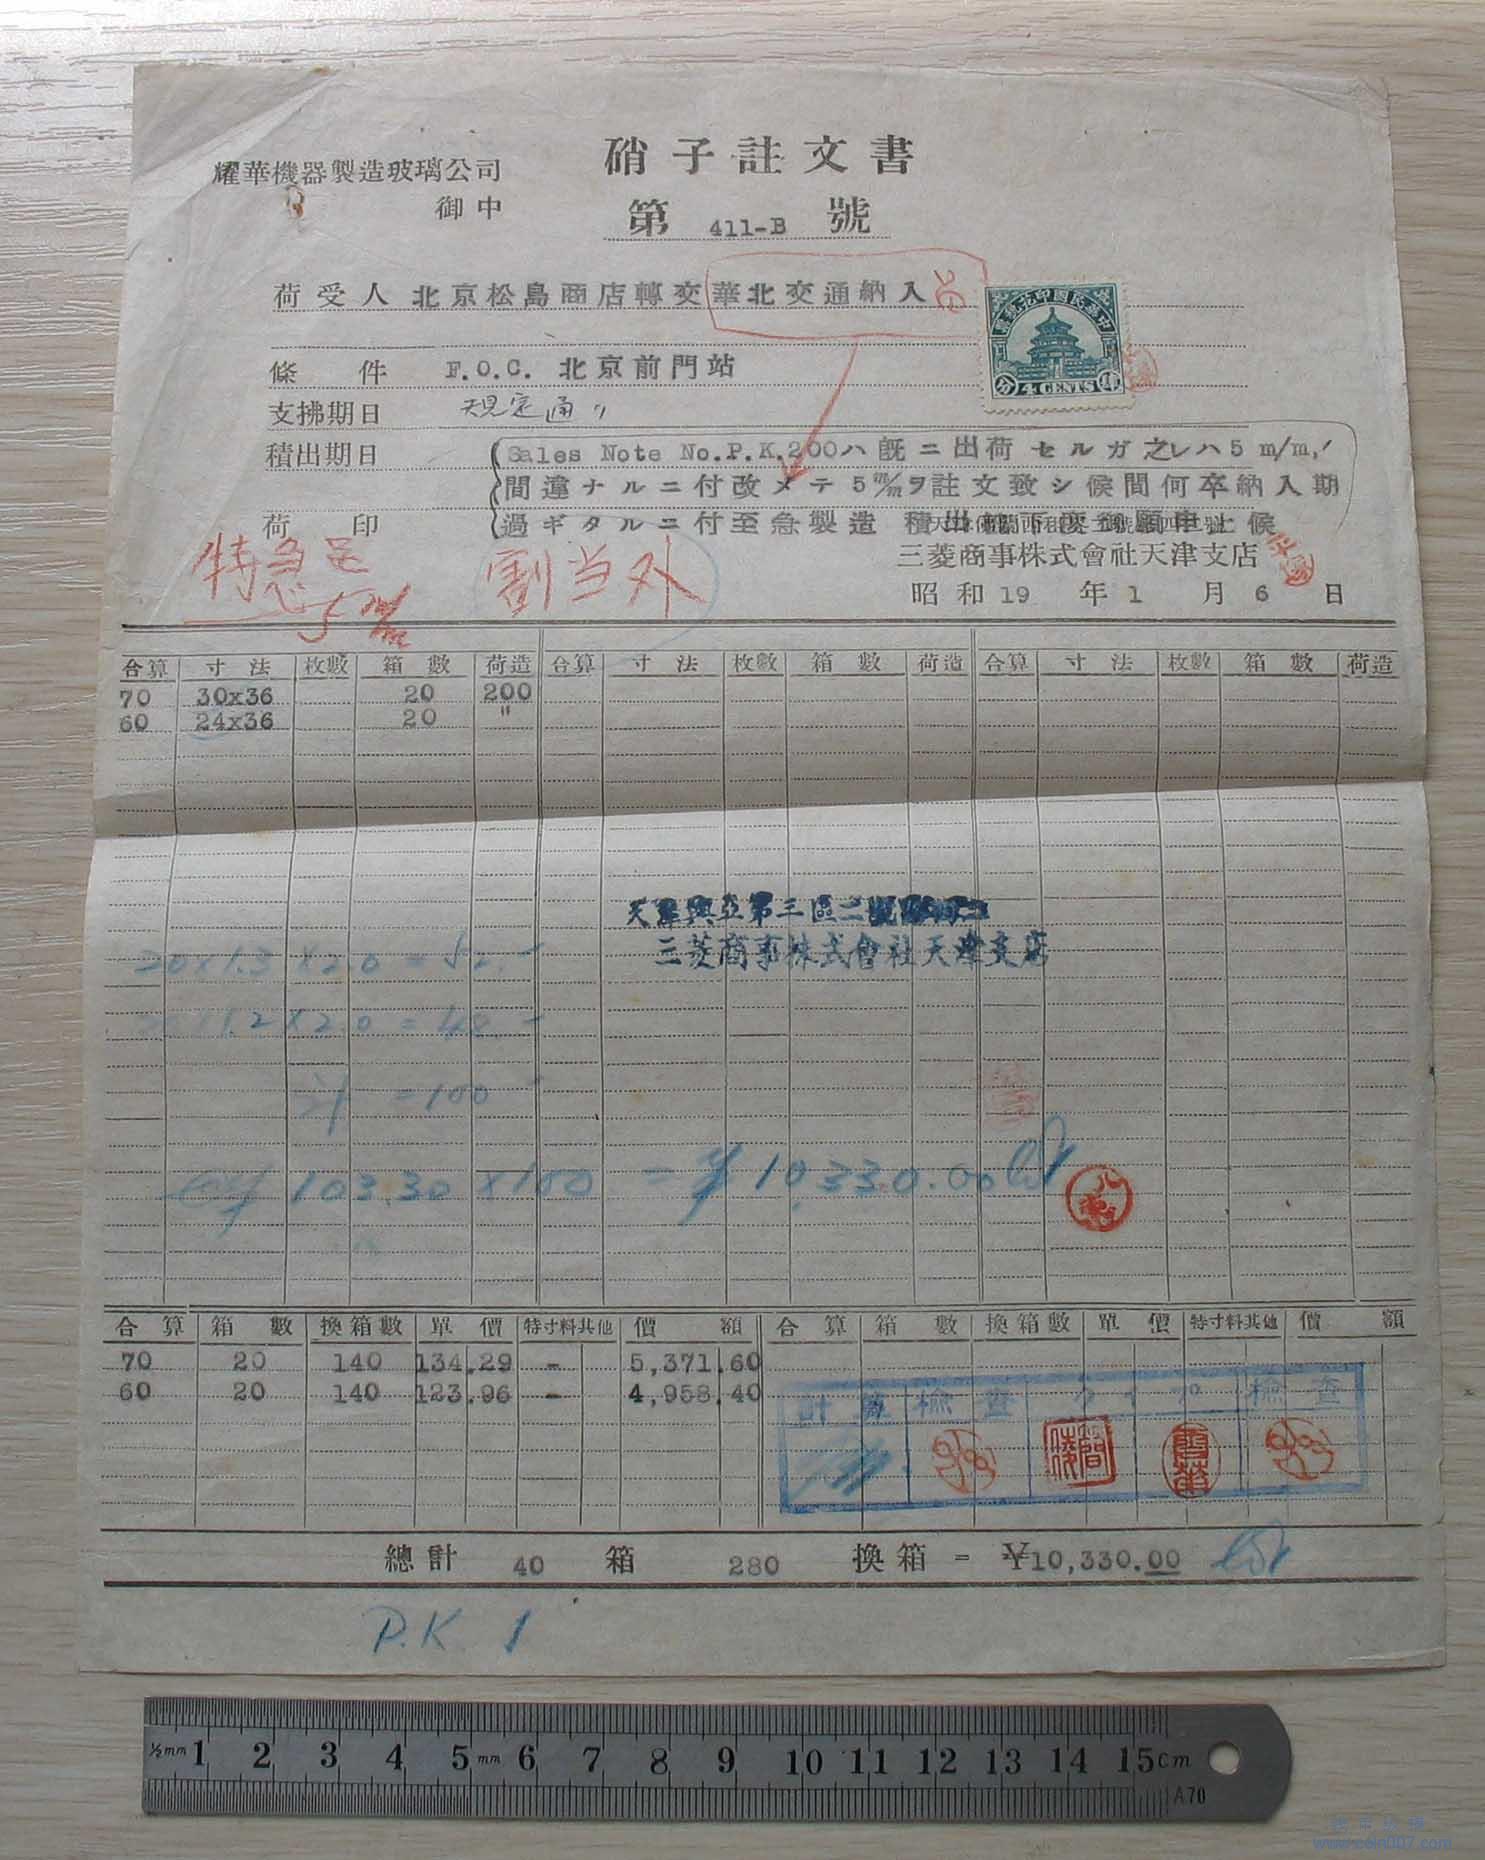 硝子註文書
耀華機器製造玻璃公司
御中
第 411-B 號
荷受人 北京松島商店轉交華北交通納入
中華民國印花稅票
4 CENTS
條件 F.O.C. 北京前門站
支拂期日 規定通リ
積出期日 Sales Note No.P.K.200ハ既ニ出荷セルガ之レハ5 m/m,
間違ナルニ付改メテ5 m/mヲ註文致シ候間何卒納入期
荷印 過ギタルニ付至急製造 積出
三菱商事株式會社天津支店
特急
5
割当外
昭和19年1月6日
合算 寸法 枚數 箱數 荷造 合算 寸法 枚數 箱數 荷造 合算 寸法 枚數 箱數 荷造
70 30x36 20 200
60 24x36 20 "
天津興亞第三區二號
三菱商事株式會社天津支店
20x1.3x2.0=52.-
20x1.2x2.0=48.-
計 =100-
¥103.30x100 = ¥10,330.00
合算 箱數 換箱數 單價 特寸料其他 價額 合算 箱數 換箱數 單價 特寸料其他 價額
70 20 140 134.29 - 5,371.60
60 20 140 123.96 - 4,958.40
計算 檢查 檢查
總計 40 箱 280 換箱 = ¥10,330.00
P.K. 1
½mm 1 2 3 4 5 mm 6 7 8 9 10 11 12 13 14 15 cm
A70
www.coin007.com